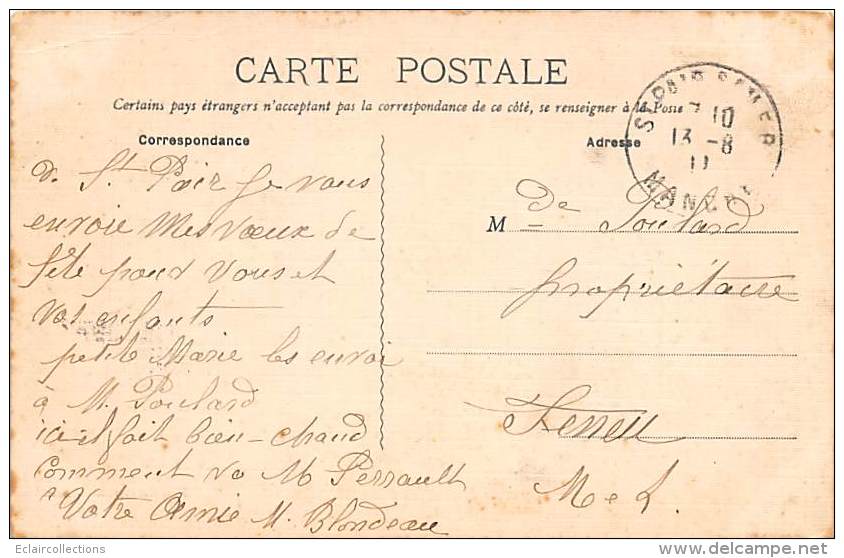 CARTE POSTALE
Certains pays étrangers n'acceptant pas la correspondance de ce côté, se renseigner à la Poste
Correspondance
Adresse
7 10
13 - 8
11
MANCHE
de St Pair Je vous
envoie mes vœux de
fête pour vous et
vos enfants
petite Marie les envoi
à M. Poulard
ici il fait bien chaud
Comment va M Perrault
Votre Amie M. Blondeau
M De Poulard
propriétaire
Feneu
M et L.
Eclaircollections
delcampe.net